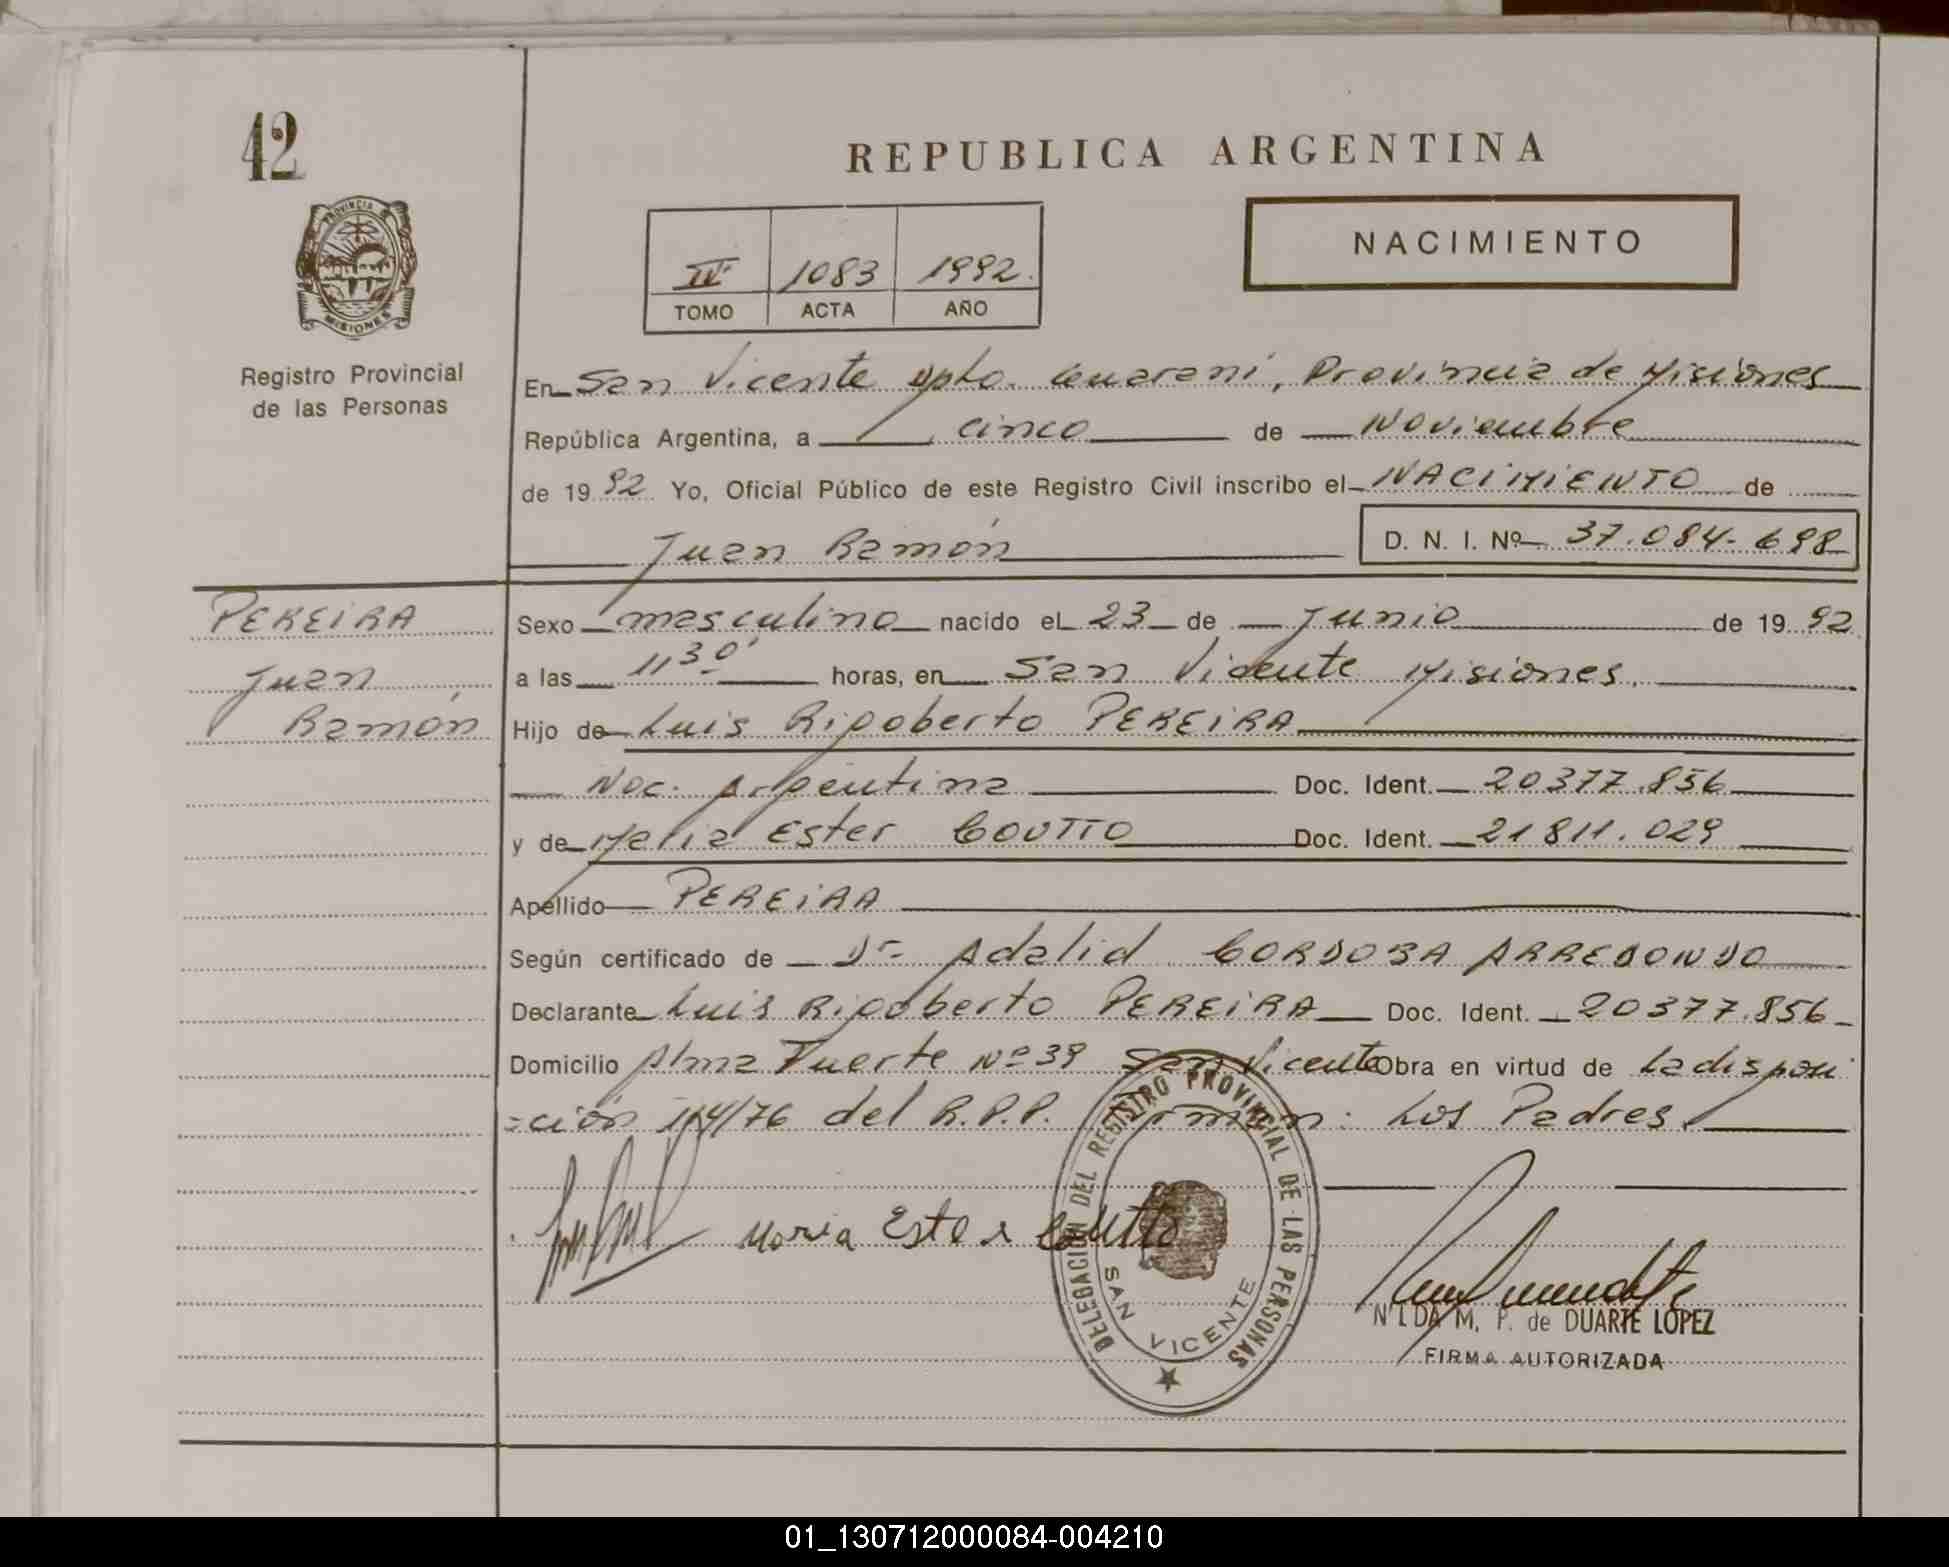 42
REPUBLICA ARGENTINA
NACIMIENTO
PROVINCIA DE
MISIONES
IV 1083 1992.
TOMO ACTA AÑO
Registro Provincial
de las Personas
En San Vicente Dpto. Guaraní, Provincia de Misiones
República Argentina, a cinco de Noviembre
de 1992 Yo, Oficial Público de este Registro Civil inscribo el NACIMIENTO de
Juan Ramón D. N. I. Nº 37.084.698
PEREIRA
Juan
Ramón
Sexo masculino nacido el 23 de Junio de 1992
a las 11 30 horas, en San Vicente Misiones.
Hijo de Luis Rigoberto PEREIRA
Nac. Argentina Doc. Ident. 20377.856
y de Maria Ester COUTTO Doc. Ident. 21811.029
Apellido PEREIRA
Según certificado de Dr. Adalid CORDOBA ARREDONDO
Declarante Luis Rigoberto PEREIRA Doc. Ident. 20377.856
Domicilio Alma Fuerte Nº 39 San Vicente Obra en virtud de La disposi
ción 114/76 del R.P.P. Firman: Los Padres.
Maria Ester Coutto
DELEGACION DEL REGISTRO PROVINCIAL DE LAS PERSONAS
SAN VICENTE
NILDA M. P. de DUARTE LOPEZ
FIRMA AUTORIZADA
01_130712000084-004210